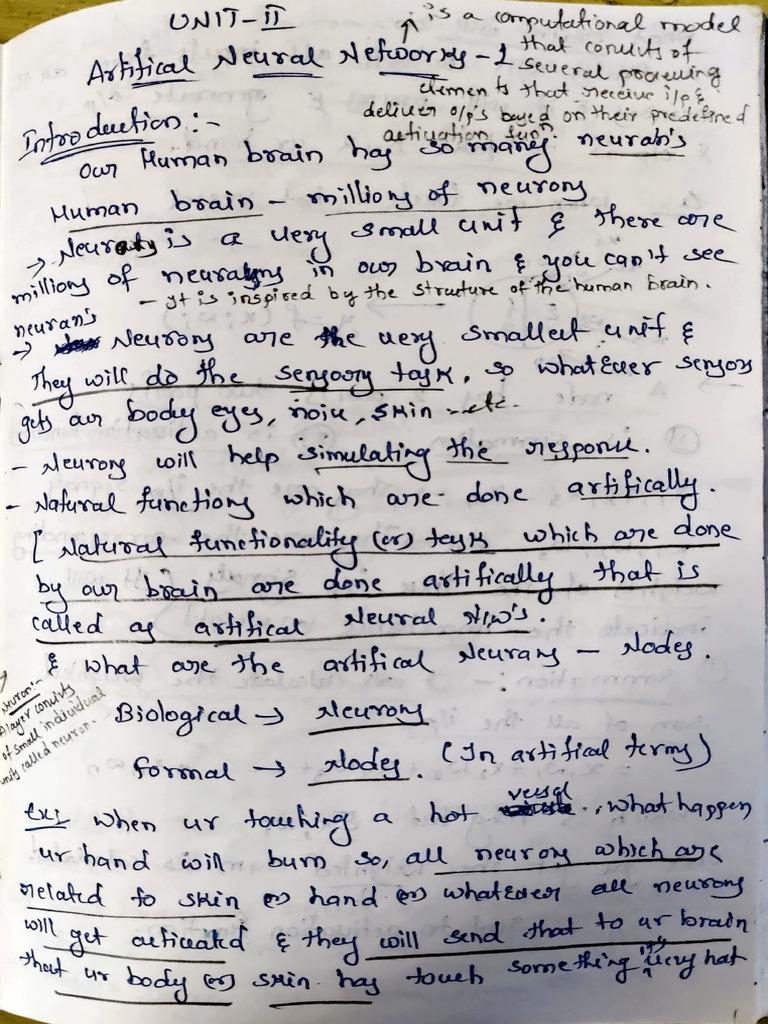 UNIT-II
Artifical Neural Networks - 1
↑ is a computational model
that consists of
several processing
elements that receive i/p &
deliver o/p's based on their predefined
activation funⁿ.
Introduction :-
Our Human brain has so many neuran's
Human brain - millions of neurons
→ Neurons is a very small unit & there are
millions of neurans in our brain & you can't see
neuran's - It is inspired by the structure of the human brain.
→ Neurons are the very smallest unit &
They will do the sensory task, so whatever sensors
gets our body eyes, noise, skin - etc.
- Neurons will help simulating the response.
- Natural functions which are done artifically.
[ Natural functionality (or) task which are done
by our brain are done artifically that is
called as artifical Neural N/w's.
& what are the artifical Neurans - Nodes.
Neuron:-
A layer consists
of small individual
units called neuron.
Biological → Neurons
formal → Nodes. (In artifical terms)
Ex: when ur touching a hot vessel, what happen
ur hand will burn so, all neurons which are
related to skin (or) hand (or) whatever all neurons
will get activated & they will send that to ur brain
that ur body (or) skin has touch something it's very hot